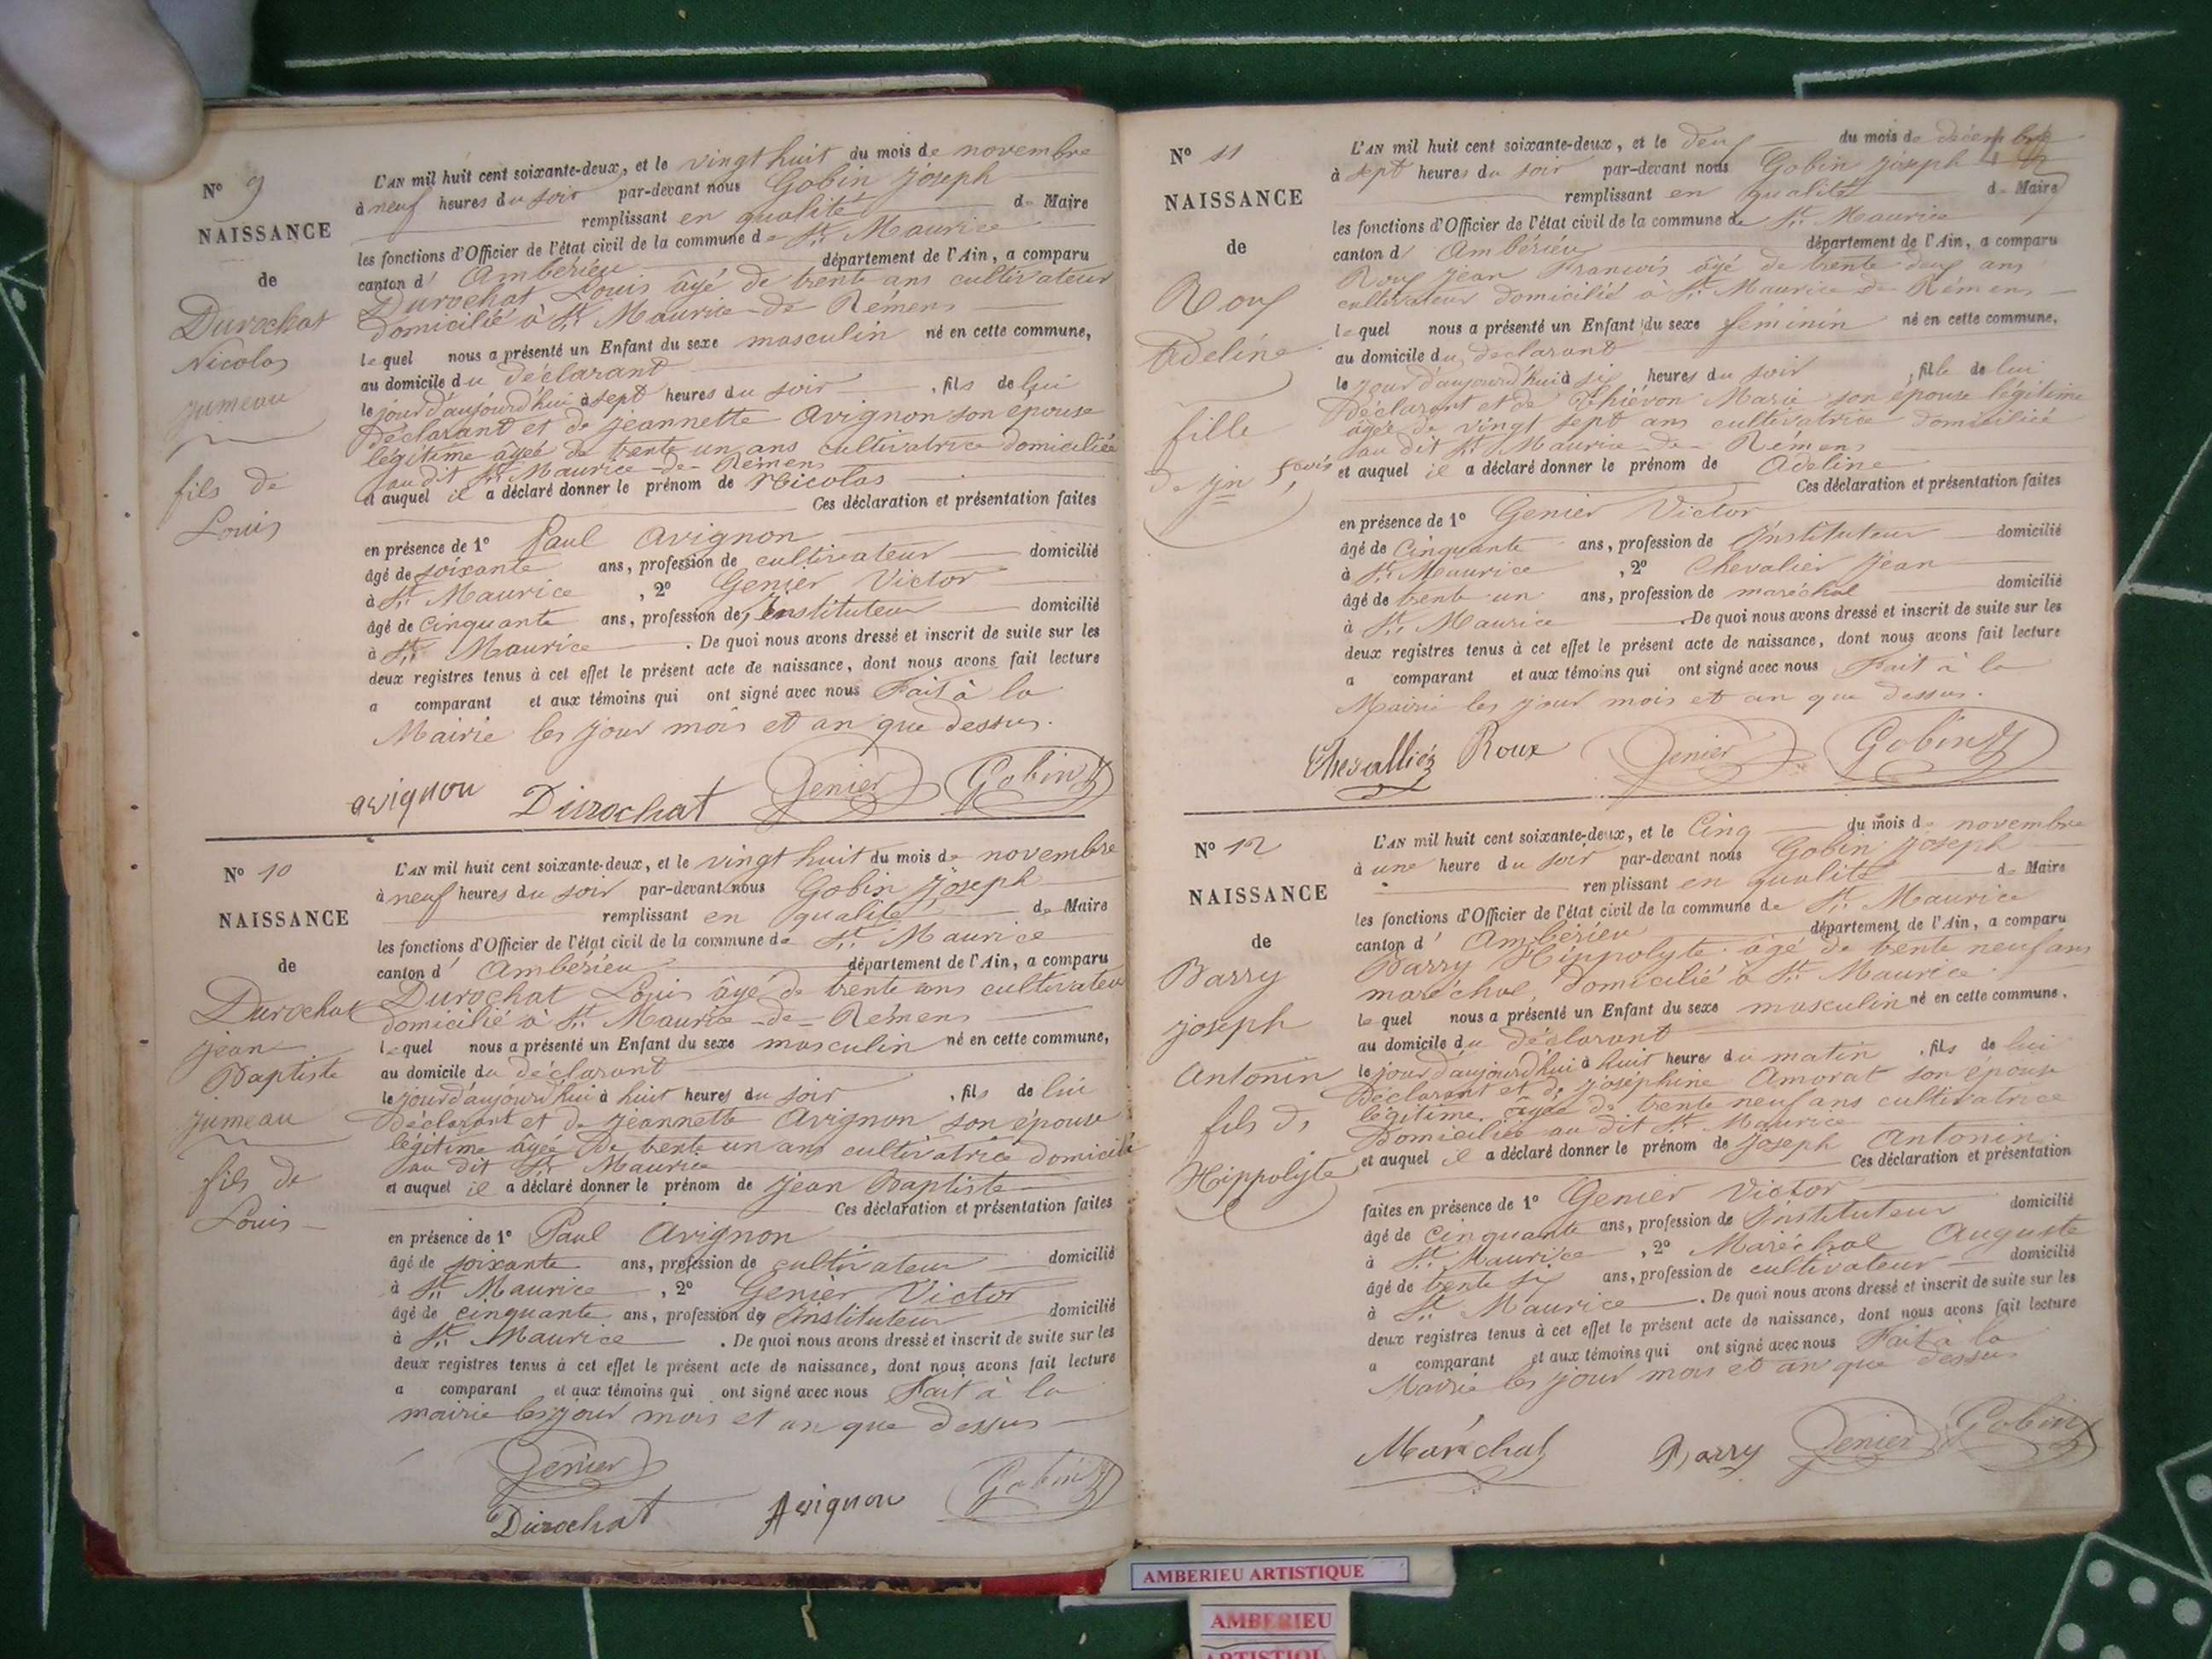 N° 9
NAISSANCE
de
Durochat
Nicolas
jumeau
fils de
Louis
L'AN mil huit cent soixante-deux, et le vingt huit du mois de novembre
à neuf heures du soir par-devant nous Gobin Joseph
remplissant en qualité de Maire
les fonctions d'Officier de l'état civil de la commune de St. Maurice
canton d' Ambérieu département de l'Ain, a comparu
Durochat Louis âgé de trente ans cultivateur
domicilié à St. Maurice-de-Rémens
lequel nous a présenté un Enfant du sexe masculin né en cette commune,
au domicile du déclarant
le jour d'aujourd'hui à sept heures du soir, fils de lui
Déclarant et de jeannette Avignon son épouse
légitime âgée de trente un ans cultivatrice domiciliée
au dit St. Maurice-de-Rémens
et auquel il a déclaré donner le prénom de Nicolas
Ces déclaration et présentation faites
en présence de 1° Paul Avignon
âgé de soixante ans, profession de cultivateur domicilié
à St. Maurice, 2° Genier Victor
âgé de cinquante ans, profession de, Instituteur domicilié
à St. Maurice. De quoi nous avons dressé et inscrit de suite sur les
deux registres tenus à cet effet le présent acte de naissance, dont nous avons fait lecture
a comparant et aux témoins qui ont signé avec nous Fait à la
Mairie les jour mois et an que dessus.
avignon Durochat Genier Gobin
N° 10
NAISSANCE
de
Durochat
jean
Baptiste
jumeau
fils de
Louis
L'AN mil huit cent soixante-deux, et le vingt huit du mois de novembre
à neuf heures du soir par-devant nous Gobin Joseph
remplissant en qualité de Maire
les fonctions d'Officier de l'état civil de la commune de St. Maurice
canton d' Ambérieu département de l'Ain, a comparu
Durochat Louis âgé de trente ans cultivateur
domicilié à St. Maurice-de-Rémens
lequel nous a présenté un Enfant du sexe masculin né en cette commune,
au domicile du déclarant
le jour d'aujourd'hui à huit heures du soir, fils de lui
Déclarant et de jeannette Avignon son épouse
légitime âgée de trente un ans cultivatrice
au dit St. Maurice
et auquel il a déclaré donner le prénom de jean Baptiste
Ces déclaration et présentation faites
en présence de 1° Paul Avignon
âgé de soixante ans, profession de cultivateur domicilié
à St. Maurice, 2° Genier Victor
âgé de cinquante ans, profession de Instituteur domicilié
à St. Maurice. De quoi nous avons dressé et inscrit de suite sur les
deux registres tenus à cet effet le présent acte de naissance, dont nous avons fait lecture
a comparant et aux témoins qui ont signé avec nous Fait à la
mairie les jour mois et an que dessus
Genier
Durochat Avignon Gobin
N° 11
NAISSANCE
de
Roux
Adeline
fille
de jn fcois
L'AN mil huit cent soixante-deux, et le deux du mois de décembre
à sept heures du soir par-devant nous Gobin Joseph
remplissant en qualité de Maire
les fonctions d'Officier de l'état civil de la commune de St. Maurice
canton d' Ambérieu département de l'Ain, a comparu
Roux Jean François âgé de trente deux ans
cultivateur domicilié à St. Maurice de Rémens
lequel nous a présenté un Enfant du sexe féminin né en cette commune,
au domicile du déclarant
le jour d'aujourd'hui à six heures du soir, fille de lui
Déclarant et de Thiévon Marie son épouse légitime
âgée de vingt sept ans cultivatrice domiciliée
au dit St. Maurice-de-Rémens
et auquel il a déclaré donner le prénom de Adeline
Ces déclaration et présentation faites
en présence de 1° Genier Victor
âgé de cinquante ans, profession de Instituteur domicilié
à St. Maurice, 2° Chevalier Jean
âgé de trente un ans, profession de maréchal domicilié
à St. Maurice. De quoi nous avons dressé et inscrit de suite sur les
deux registres tenus à cet effet le présent acte de naissance, dont nous avons fait lecture
a comparant et aux témoins qui ont signé avec nous Fait à la
Mairie les jour mois et an que dessus.
Roux Genier Gobin
N° 12
NAISSANCE
de
Barry
joseph
Antonin
fils d,
Hippolyte
L'AN mil huit cent soixante-deux, et le Cinq du mois de novembre
à une heure du soir par-devant nous Gobin Joseph
remplissant en qualité de Maire
les fonctions d'Officier de l'état civil de la commune de St. Maurice
canton d' Ambérieu département de l'Ain, a comparu
Barry Hippolyte âgé de trente neuf ans
maréchal, domicilié à St. Maurice
lequel nous a présenté un Enfant du sexe masculin né en cette commune,
au domicile du déclarant
le jour d'aujourd'hui à huit heures du matin, fils de lui
Déclarant et de joséphine Amorat son épouse
légitime âgée de trente neuf ans cultivatrice
Domiciliée au dit St. Maurice
et auquel il a déclaré donner le prénom de joseph Antonin
Ces déclaration et présentation
faites en présence de 1° Genier Victor
âgé de cinquante ans, profession de Instituteur domicilié
à St. Maurice, 2° Maréchal Auguste
âgé de trente six ans, profession de cultivateur domicilié
à St. Maurice. De quoi nous avons dressé et inscrit de suite sur les
deux registres tenus à cet effet le présent acte de naissance, dont nous avons fait lecture
a comparant et aux témoins qui ont signé avec nous Fait à la
Mairie les jour mois et an que dessus
Maréchal Barry Genier Gobin
AMBERIEU ARTISTIQUE
AMBERIEU
ARTISTIQU